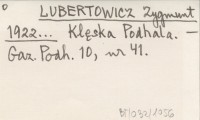 LUBERTOWICZ Zygmunt
1922... Klęska Podhala. —
Gaz. Podh. 10, nr 41.